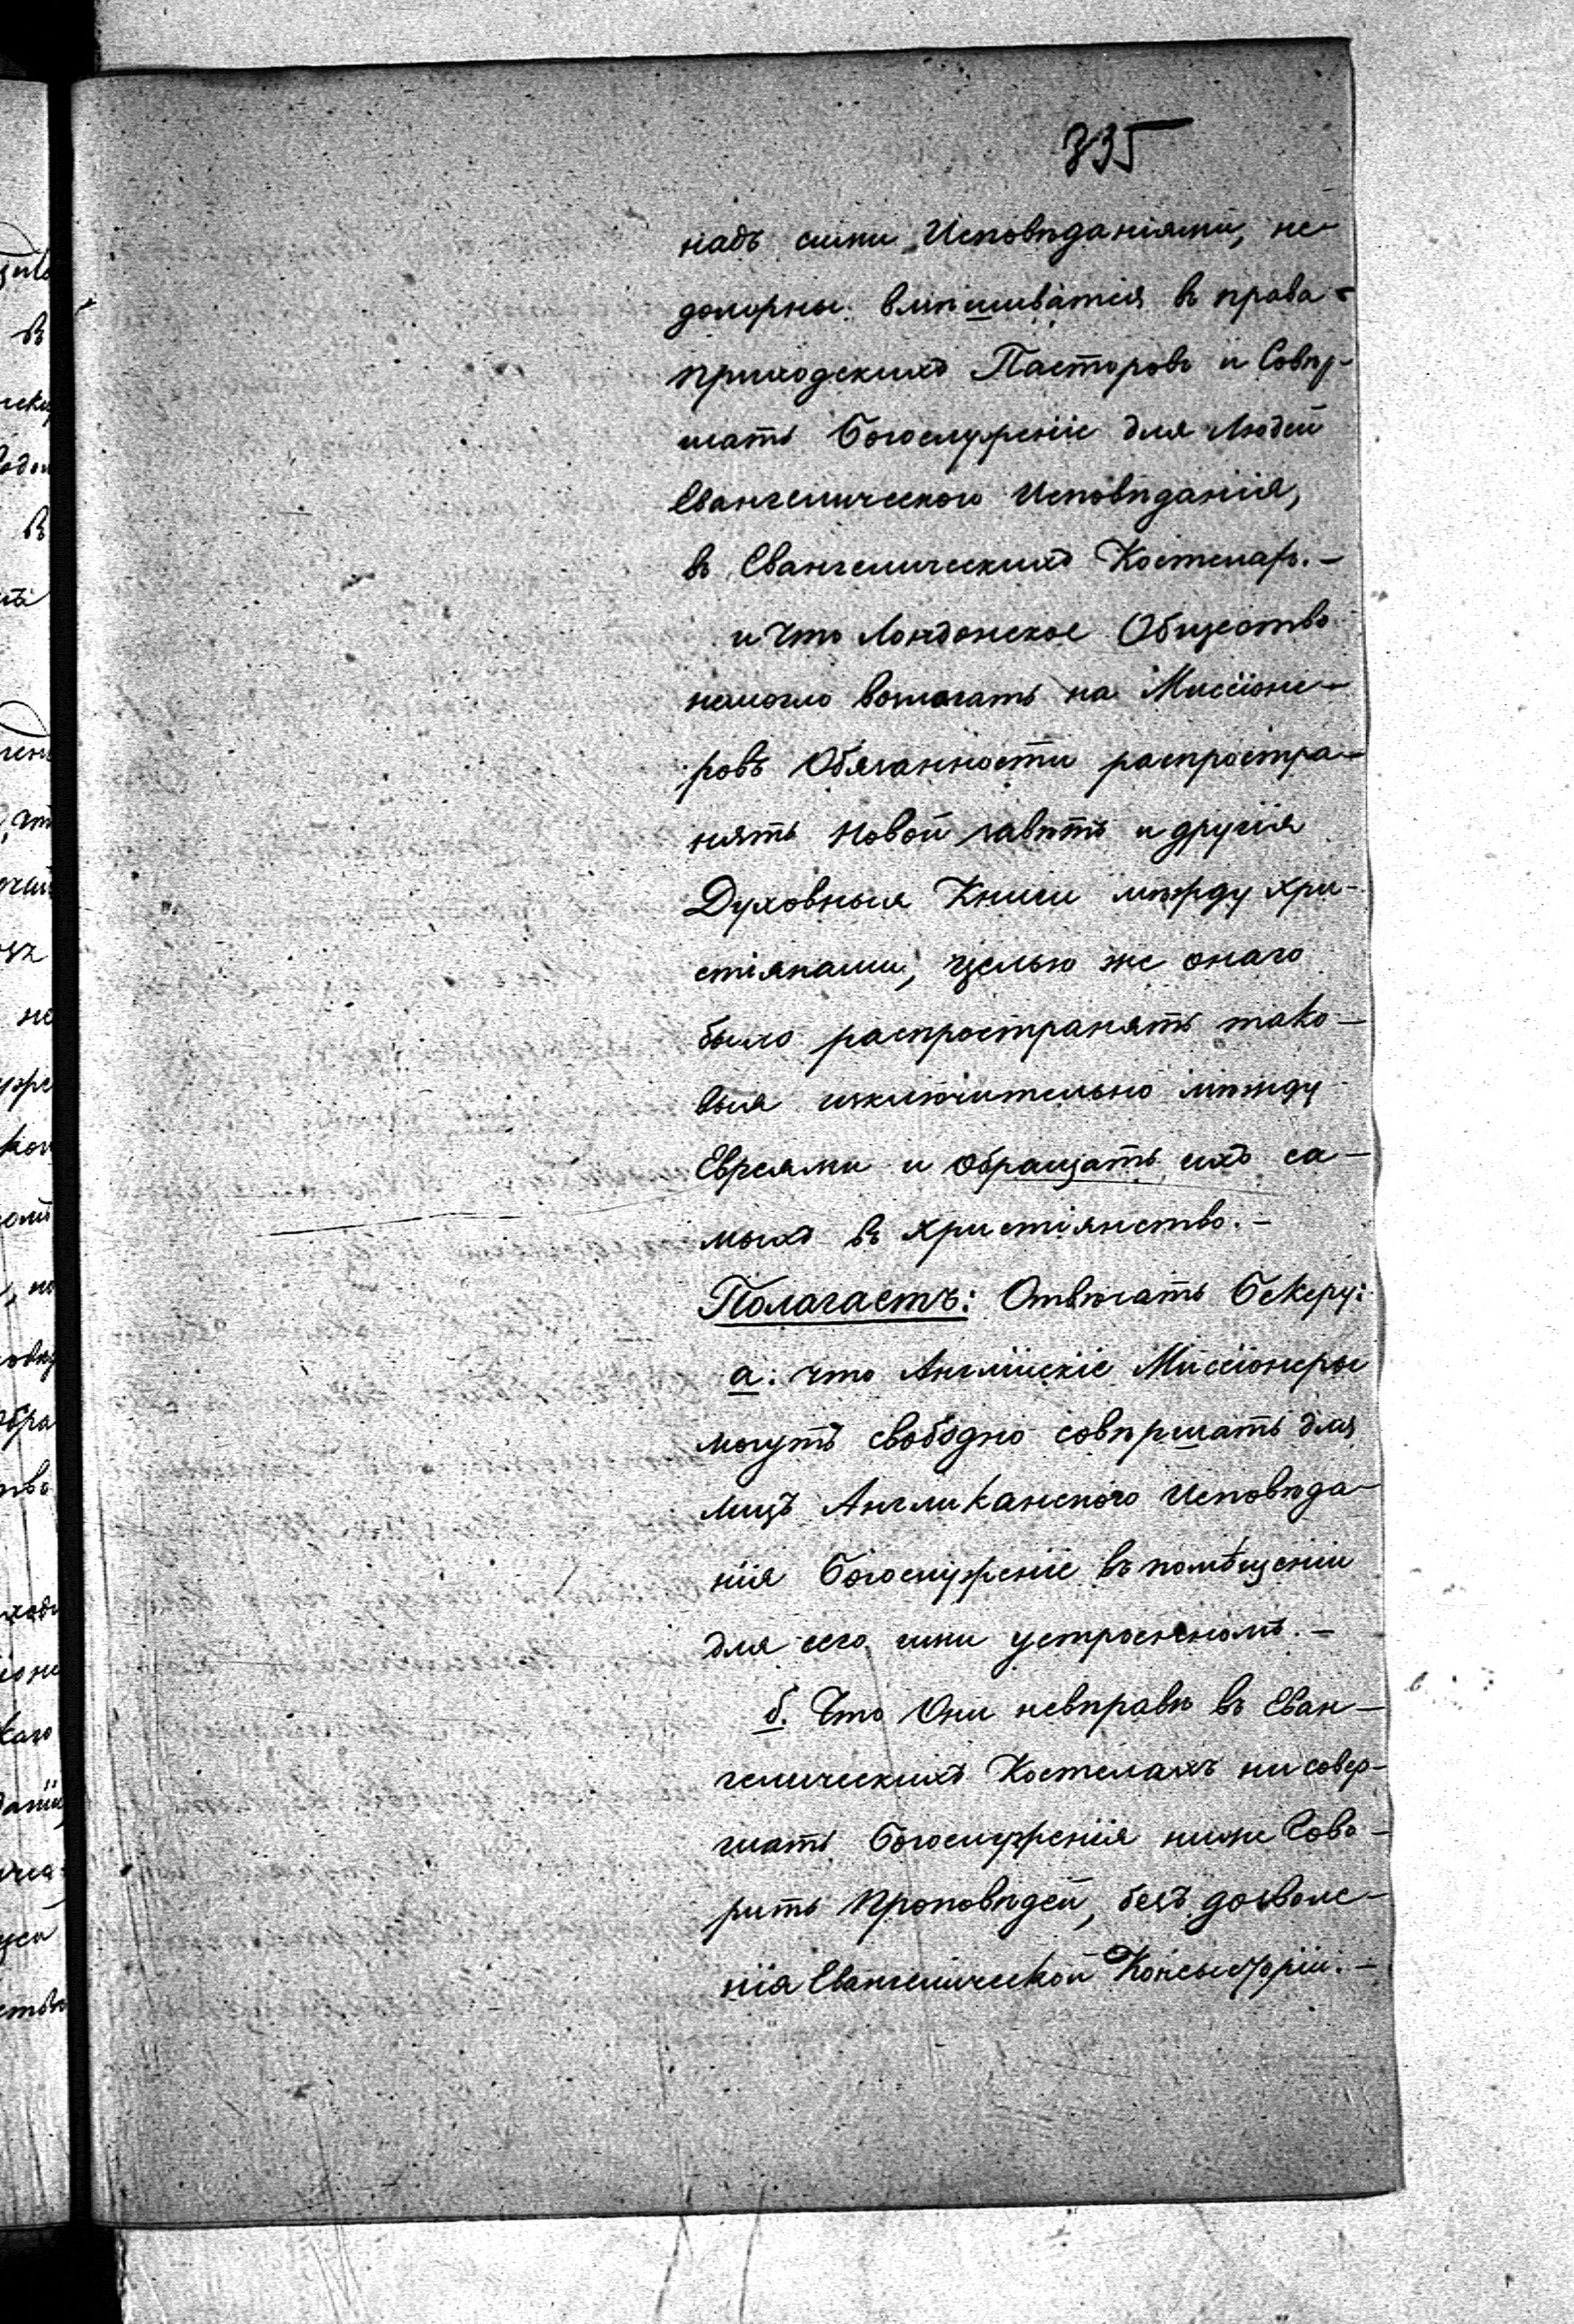 335
надъ сими Исповѣданіями, не-
должны вмѣшиватся въ права
приходскихъ Пасторовъ и Совѣр-
шать Богослуженіе для Людей
Евангелическаго Исповѣданія,
въ Евангелическихъ Костелахъ.-
и что Лондонское Общество
немогло возлагать на Миссіоне-
ровъ Обязанности распростра-
нять Новой завѣтъ и другія
Духовныя Книги мѣжду хри-
стіянами, цѣлью же онаго
было распространять тако-
выя изключительно мѣжду
Евреями и обращать ихъ са-
мыхъ въ христіянство.-
Полагаетъ: Отвѣчать Бекеру:
а. что Англійскіе Миссіонеры
могутъ свободно совѣршать для
лицъ Англиканскаго Исповѣда-
нія Богослуженіе въ помѣщеніи
для сего ими устроенномъ.-
б. Что Они невправѣ въ Еван-
гелическихъ Костелахъ ни совер-
шать Богослуженія ниже Гово-
рить Проповѣдей, безъ дозволе-
нія Евангелической Консысторіи.-